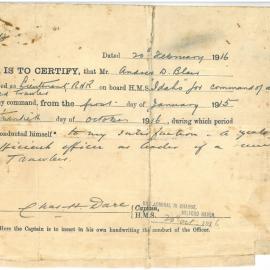 Dated 20th February 1916
IS TO CERTIFY, that Mr Andrew D. Blair
as Lieutenant RNR on board H.M.S. "Idaho" for command of a
Trawler
command, from the first day of January 1915
day of October 1916, during which period
conducted himself to my satisfaction - A zealous
efficient officer as leader of a
Trawlers.
Chas H Dare
Captain,
H.M.S.
REAR ADMIRAL IN CHARGE,
MILFORD HAVEN.
20 Oct 1916
Here the Captain is to insert in his own handwriting the conduct of the Officer.